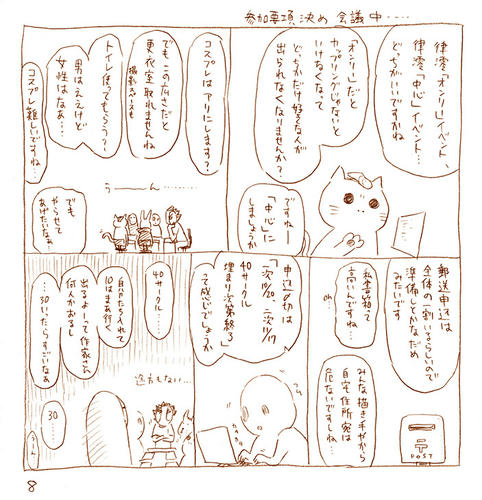 参加要項決め会議中‥‥
律澪「オンリー」イベント、
律澪「中心」イベント…
どっちがいいですかね
「オンリー」だと
カップリングじゃないと
いけなくなって
どっちかだけ好くな人が
出られなくなりませんか?
ですねー
「中心」に
しましょうか
コスプレはアリにします?
でもこの広さだと
更衣室取れませんね
撮影スペースも
トイレ使ってもらう?
男はええけど
女性はなぁ…
コスプレ難しいですね…
うーーん…
でも
やらせて
あげたいなぁ…
郵送申込は
全体の一割いるらしいので
準備しとかなだめ
みたいです
私書箱って
高いんですね…
oh
みんな描き手やから
自宅住所宛は
危ないですしね…
POST
申込〆切は
「一次10/20、二次11/17
40サークル
埋まり次第終了」
って感じでしょうか
カタカタ
40サークル…
自分たち入れて
10はまあ行く
出るよーって作家さん
何人かおるし
…30いったらすごいなぁ
途方もない…
30…
うーん
8